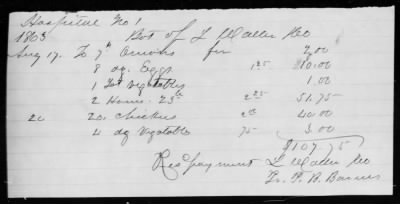 Hospital No 1
1863 Bot of L Waller &co
Aug 17. To Onions for 2.00
8 dz. Eggs 1.25 $10.00
1 Lot Vegatables 1.00
2 Hams. 23 lb 2.25 51.75
20 20. Chickens 2.00 40.00
4 dz Vegatable 75 3.00
$107.75
Rec payment L Waller &co